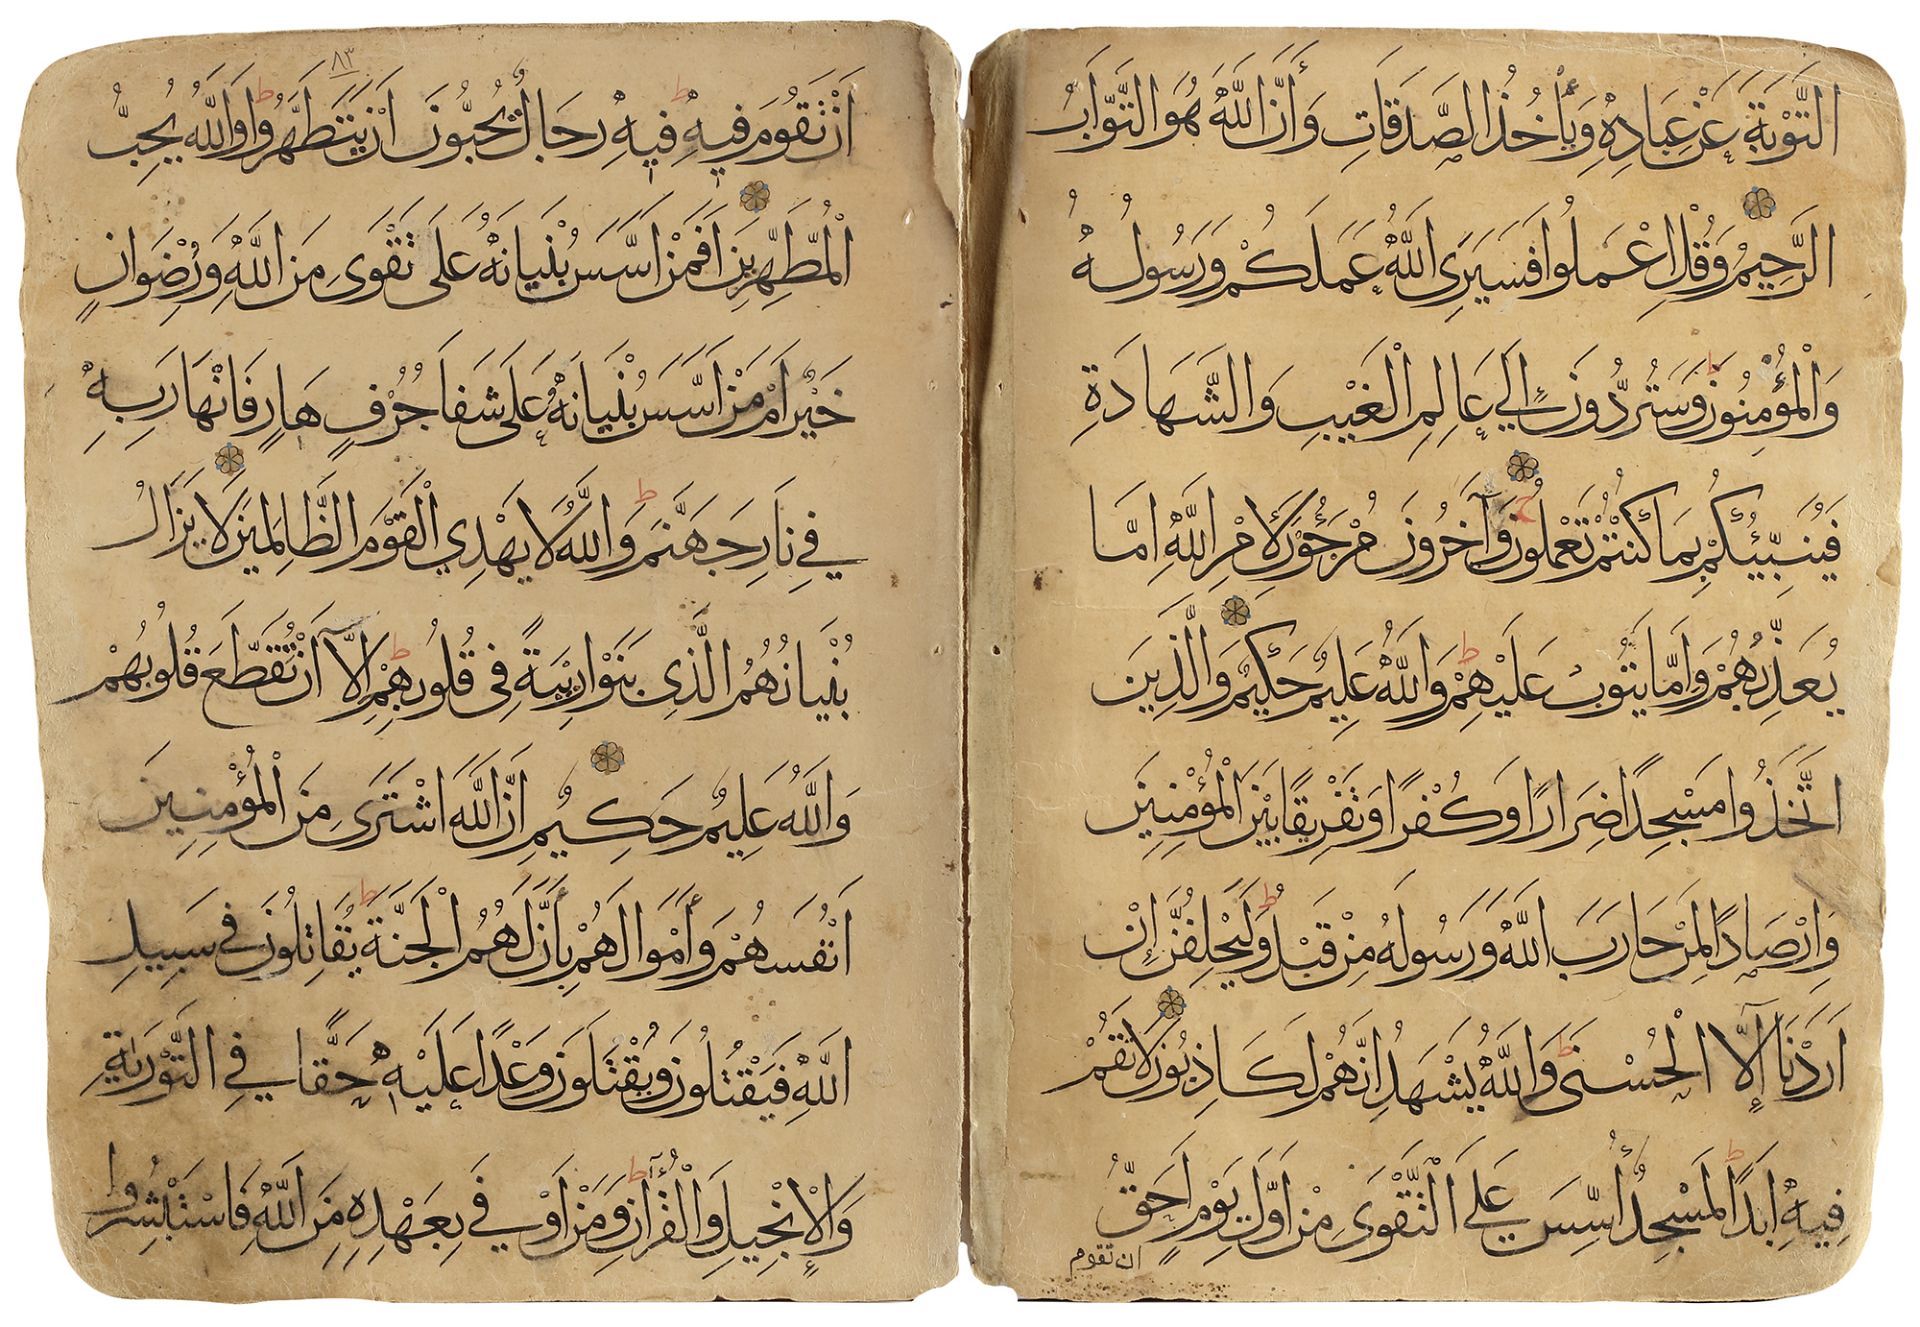 التَّوْبَةَ عَنْ عِبَادِهِ وَيَأْخُذُ الصَّدَقَاتِ وَأَنَّ اللَّهَ هُوَ التَّوَّابُ
الرَّحِيمُ وَقُلِ اعْمَلُوا فَسَيَرَى اللَّهُ عَمَلَكُمْ وَرَسُولُهُ
وَالْمُؤْمِنُونَ ط وَسَتُرَدُّونَ إِلَى عَالِمِ الْغَيْبِ وَالشَّهَادَةِ
فَيُنَبِّئُكُمْ بِمَا كُنْتُمْ تَعْمَلُونَ وَآخَرُونَ مُرْجَوْنَ لِأَمْرِ اللَّهِ إِمَّا
يُعَذِّبُهُمْ وَإِمَّا يَتُوبُ عَلَيْهِمْ ط وَاللَّهُ عَلِيمٌ حَكِيمٌ وَالَّذِينَ
اتَّخَذُوا مَسْجِدًا ضِرَارًا وَكُفْرًا وَتَفْرِيقًا بَيْنَ الْمُؤْمِنِينَ
وَإِرْصَادًا لِمَنْ حَارَبَ اللَّهَ وَرَسُولَهُ مِنْ قَبْلُ ط وَلَيَحْلِفُنَّ إِنْ
أَرَدْنَا إِلَّا الْحُسْنَى ط وَاللَّهُ يَشْهَدُ إِنَّهُمْ لَكَاذِبُونَ لَا تَقُمْ
فِيهِ أَبَدًا ط لَمَسْجِدٌ أُسِّسَ عَلَى التَّقْوَى مِنْ أَوَّلِ يَوْمٍ أَحَقُّ
ان تقوم
٨٣
أَنْ تَقُومَ فِيهِ ط فِيهِ رِجَالٌ يُحِبُّونَ أَنْ يَتَطَهَّرُوا ط وَاللَّهُ يُحِبُّ
الْمُطَّهِّرِينَ أَفَمَنْ أَسَّسَ بُنْيَانَهُ عَلَى تَقْوَى مِنَ اللَّهِ وَرِضْوَانٍ
خَيْرٌ أَمْ مَنْ أَسَّسَ بُنْيَانَهُ عَلَى شَفَا جُرُفٍ هَارٍ فَانْهَارَ بِهِ
فِي نَارِ جَهَنَّمَ ط وَاللَّهُ لَا يَهْدِي الْقَوْمَ الظَّالِمِينَ لَا يَزَالُ
بُنْيَانُهُمُ الَّذِي بَنَوْا رِيبَةً فِي قُلُوبِهِمْ ط إِلَّا أَنْ تَقَطَّعَ قُلُوبُهُمْ
وَاللَّهُ عَلِيمٌ حَكِيمٌ إِنَّ اللَّهَ اشْتَرَى مِنَ الْمُؤْمِنِينَ
أَنْفُسَهُمْ وَأَمْوَالَهُمْ بِأَنَّ لَهُمُ الْجَنَّةَ ط يُقَاتِلُونَ فِي سَبِيلِ
اللَّهِ فَيَقْتُلُونَ وَيُقْتَلُونَ وَعْدًا عَلَيْهِ حَقًّا فِي التَّوْرَىٰةِ
وَالْإِنْجِيلِ وَالْقُرْآنِ ط وَمَنْ أَوْفَى بِعَهْدِهِ مِنَ اللَّهِ فَاسْتَبْشِرُوا